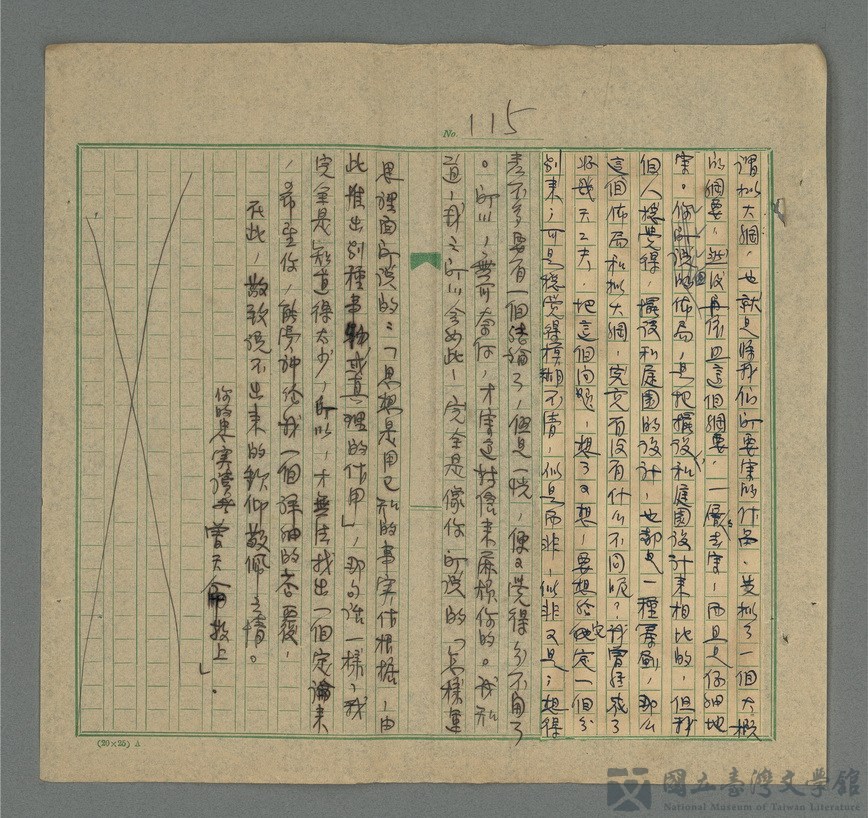 No. 115
謂擬大綱，也就是將我們所要寫的作品，先擬了一個大概
的綱要，然後再依照這個綱要，一層一層去寫，而且是仔細地
寫。你所說的佈局，是把擺設和庭園設計來相比的，但我
個人總覺得，擺設和庭園的設計，也都是一種佈局，那么
這個佈局和擬大綱，究竟有沒有什么不同呢？我曾經費了
好幾天工夫，把這個問題，想了又想，要想給它定一個分
別來；可是總覺得模糊不清，似是而非，似非又是；想得
差不多要有一個結論了，但是一恍，便又覺得分不開了
。所以，無可奈何，才寫這封信來麻煩你的。我知
道，我之所以會如此，完全是像你所說的「怎樣運
思裡面所說的：「思想是用已知的事實作根據，由
此推出別種事物或真理的作用」，那句話一樣，我
完全是知道得太少，所以，才無法找出一個定論來
，希望你，能夠神給我一個詳細的答覆，
在此，敬致說不出來的欽仰敬佩之情。
你的忠實讀者曾天 敬上
」。
(20×25) A
國立臺灣文學館
National Museum of Taiwan Literature